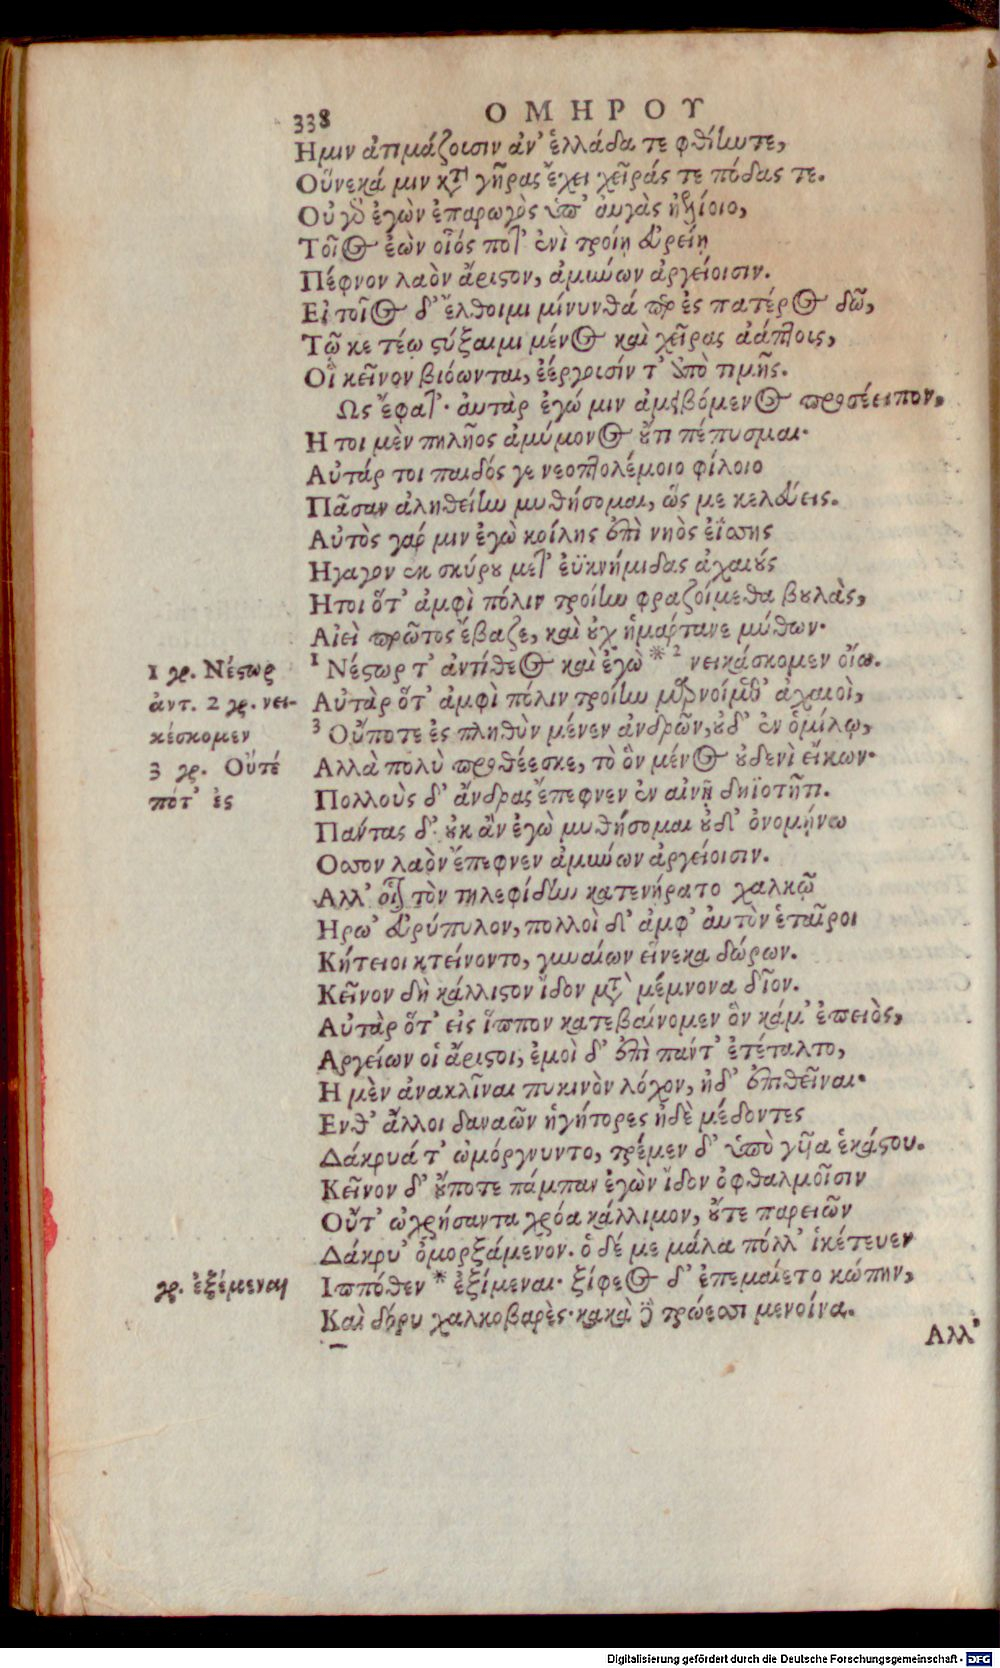 338 ΟΜΗΡΟΥ
Ημιν ἀτιμάζοισιν ἀν' ἑλλάδα τε φθίην τε,
Οὕνεκά μιν κατὰ γῆρας ἔχει χεῖράς τε πόδας τε.
Οὐ γὰρ ἐγὼν ἐπαρωγὸς ὑπ' ἀυγὰς ἠελίοιο,
Τοῖος ἐὼν οἷός ποτ' ἐνὶ τροίῃ εὐρείῃ
Πέφνον λαὸν ἄριστον, ἀμύνων ἀργείοισιν.
Εἰ τοῖος δ' ἔλθοιμι μίνυνθά περ ἐς πατέρος δῶ,
Τῷ κε τέῳ στύξαιμι μένος καὶ χεῖρας ἀάπτοις,
Οἳ κεῖνον βιόωνται, ἐέργοισίν τ' ἀπὸ τιμῆς.
Ως ἔφατ'· ἀυτὰρ ἐγώ μιν ἀμειβόμενος προσέειπον,
Η τοι μὲν πηλῆος ἀμύμονος οὔτι πέπυσμαι·
Αὐτάρ τοι παιδός γε νεοπτολέμοιο φίλοιο
Πᾶσαν ἀληθείην μυθήσομαι, ὥς με κελεύεις.
Αὐτὸς γάρ μιν ἐγὼ κοίλης ἐπὶ νηὸς ἐΐσης
Ηγαγον ἐκ σκύρου μετ' ἐϋκνήμιδας ἀχαιούς
Ητοι ὅτ' ἀμφὶ πόλιν τροίην φραζοίμεθα βουλὰς,
Αἰεὶ πρῶτος ἔβαζε, καὶ οὐχ ἡμάρτανε μύθων·
1 γρ. Νέστωρ ¹ Νέστωρ τ' ἀντίθεος καὶ ἐγὼ * ² νεικάσκομεν οἴω.
ἀντ. 2 γρ. νει- Αὐτὰρ ὅτ' ἀμφὶ πόλιν τροίην μαρνοίμεθ' ἀχαιοὶ,
κέσκομεν ³ Οὔποτε ἐς πληθὺν μένεν ἀνδρῶν, οὐδ' ἐν ὁμίλῳ,
3 γρ. Οὔτέ Αλλὰ πολὺ προθέεσκε, τὸ ὃν μένος οὐδενὶ εἴκων·
πότ' ἐς Πολλοὺς δ' ἄνδρας ἔπεφνεν ἐν αἰνῇ δηϊοτῆτι.
Πάντας δ' οὐκ ἂν ἐγὼ μυθήσομαι οὐδ' ὀνομήνω
Οσσον λαὸν ἔπεφνεν ἀμύνων ἀργείοισιν.
Αλλ' οἷον τὸν τηλεφίδην κατενήρατο χαλκῷ
Ηρω' εὐρύπυλον, πολλοὶ δ' ἀμφ' ἀυτὸν ἑταῖροι
Κήτειοι κτείνοντο, γυναίων εἵνεκα δώρων.
Κεῖνον δὴ κάλλιστον ἴδον μετὰ μέμνονα δῖον.
Αὐτὰρ ὅτ' εἰς ἵππον κατεβαίνομεν ὃν κάμ' ἐπειὸς,
Αργείων οἱ ἄριστοι, ἐμοὶ δ' ἐπὶ πάντ' ἐτέταλτο,
Η μὲν ἀνακλῖναι πυκινὸν λόχον, ἠδ' ἐπιθεῖναι·
Ενθ' ἄλλοι δαναῶν ἡγήτορες ἠδὲ μέδοντες
Δάκρυά τ' ὠμόργνυντο, τρέμεν δ' ὑπὸ γυῖα ἑκάστου.
Κεῖνον δ' οὔποτε πάμπαν ἐγὼν ἴδον ὀφθαλμοῖσιν
Οὔτ' ὠχρήσαντα χρόα κάλλιμον, οὔτε παρειῶν
Δάκρυ' ὀμορξάμενον. ὁ δέ με μάλα πόλλ' ἱκέτευεν
γρ. ἐξέμεναι Ιππόθεν * ἐξίμεναι· ξίφεος δ' ἐπεμαίετο κώπην,
Καὶ δόρυ χαλκοβαρὲς· κακὰ δὲ τρώεσσι μενοίνα.
Αλλ'
Digitalisierung gefördert durch die Deutsche Forschungsgemeinschaft - DFG